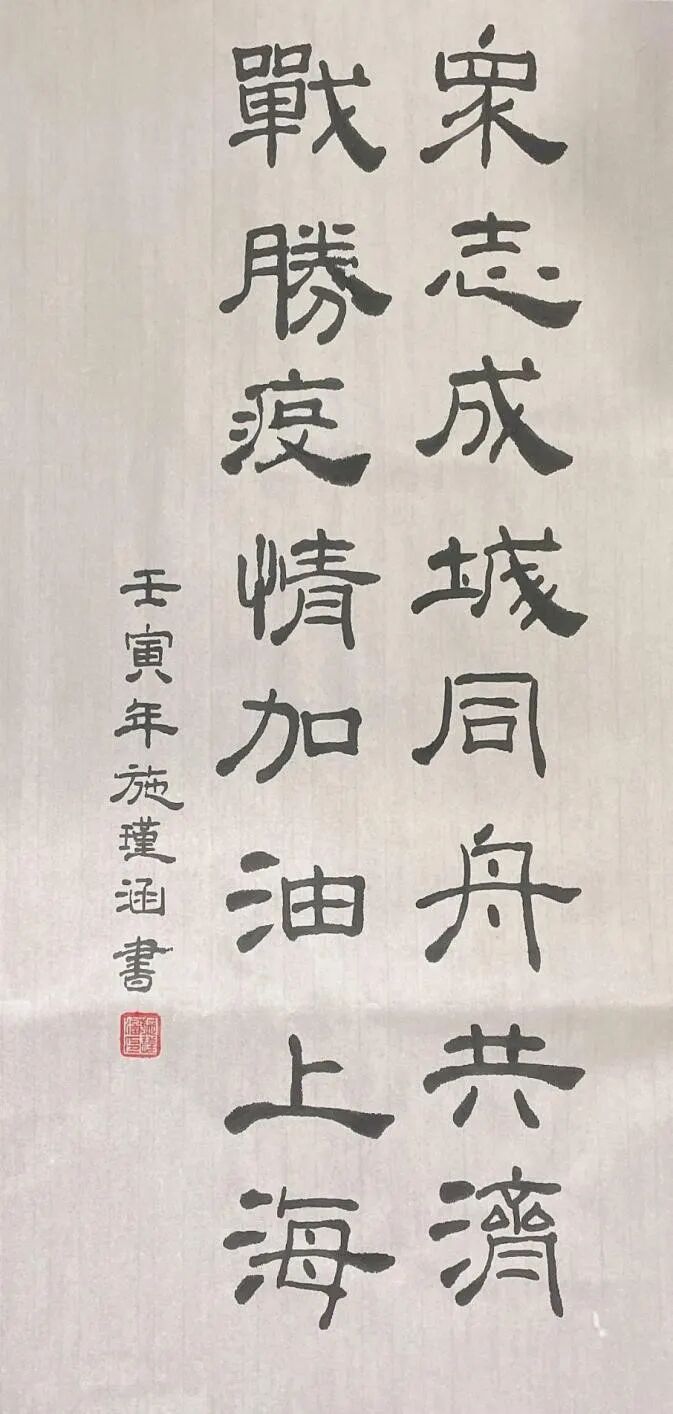 眾志成城同舟共濟
戰勝疫情加油上海
壬寅年施瑾涵書